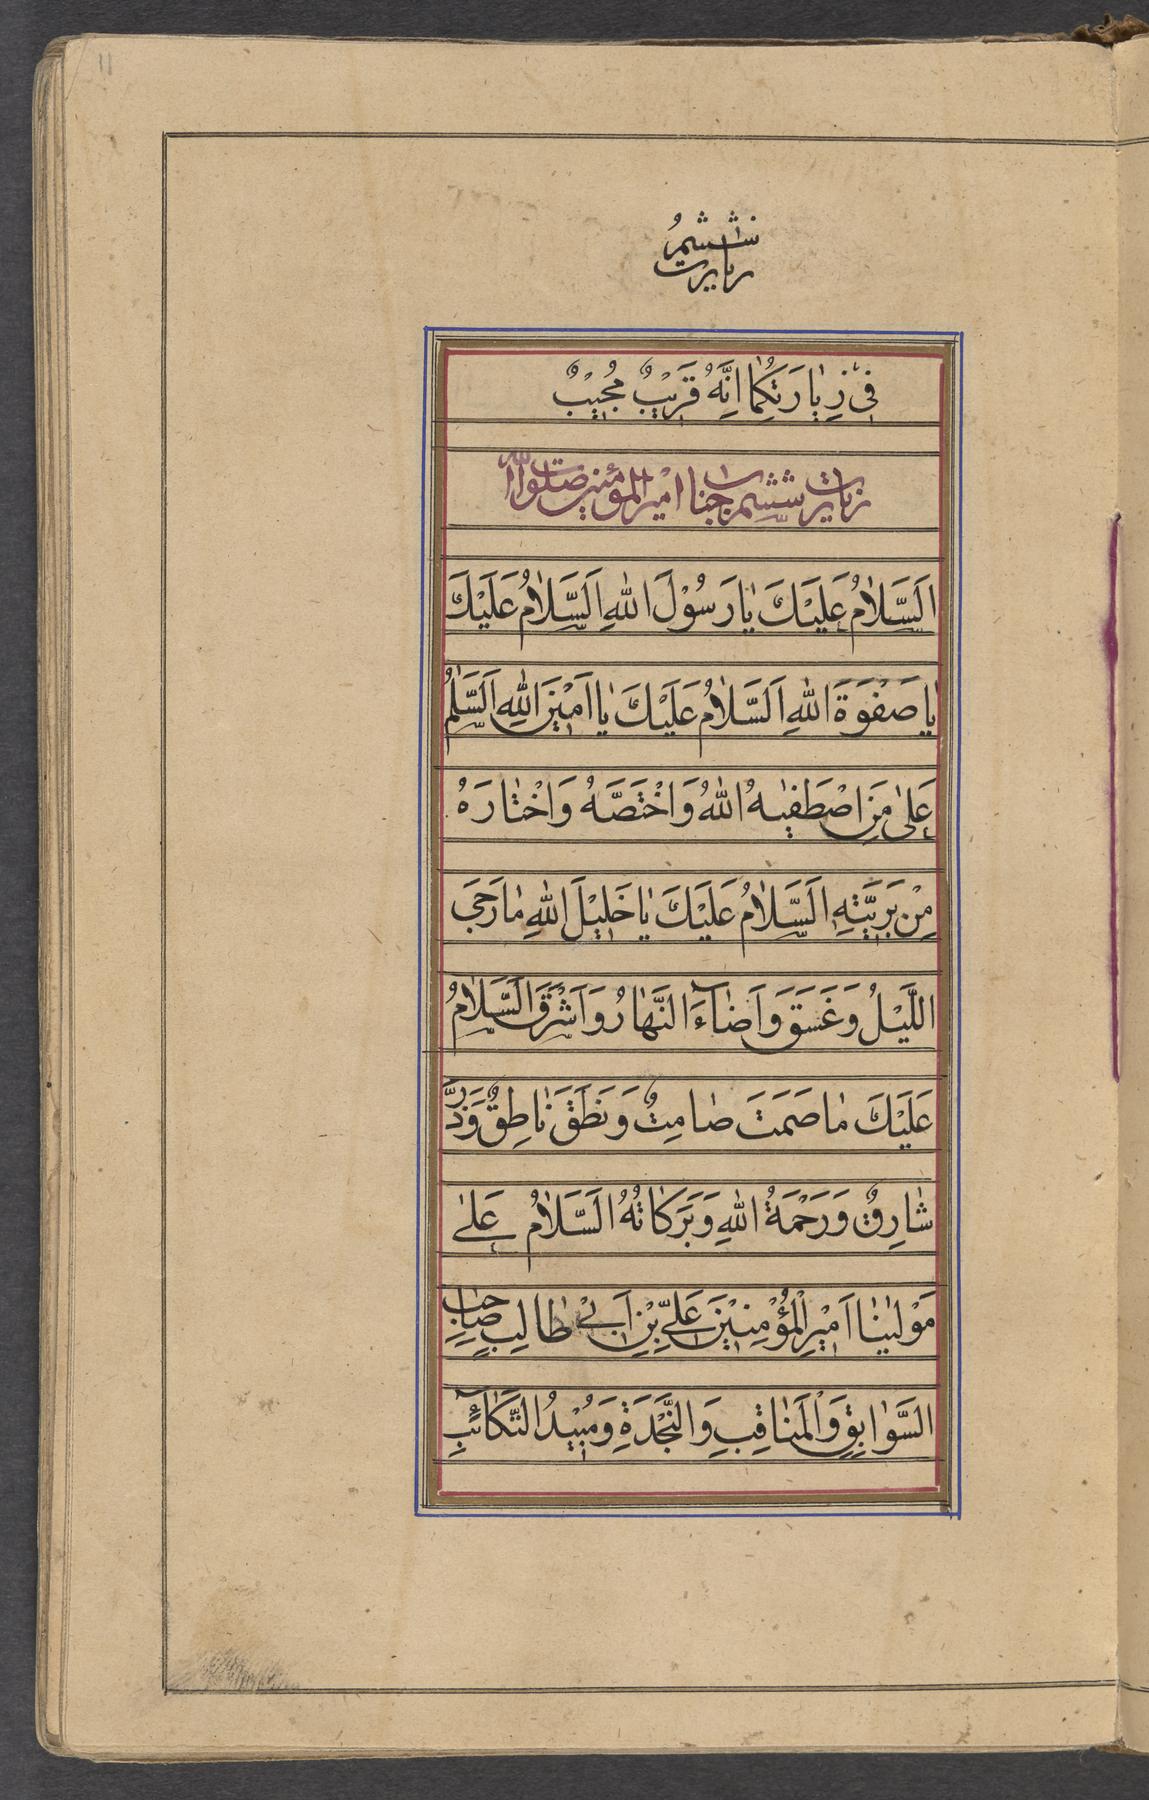 11
زیارت ششم
فی زِیٰارَتِکُمٰا اِنَّهُ قَریْبٌ مُجیْبٌ
زیارت ششم جناب امیر المؤمنین صلوات الله
اَلسَّلٰامُ عَلَیْكَ یٰا رَسُوْلَ اللهِ اَلسَّلٰامُ عَلَیْكَ
یٰا صَفْوَةَ اللهِ اَلسَّلٰامُ عَلَیْكَ یٰا اَمیْنَ اللهِ اَلسَّلٰمُ
عَلیٰ مَنِ اصْطَفیٰهُ اللهُ وَ اخْتَصَّهُ وَ اخْتٰارَهُ
مِنْ بَریَّتِهِ اَلسَّلٰامُ عَلَیْكَ یٰا خَلیْلَ اللهِ مٰا دَجَی
اللَّیْلُ وَ غَسَقَ وَ اَضٰآءَ النَّهٰارُ وَ اَشْرَقَ اَلسَّلٰامُ
عَلَیْكَ مٰا صَمَتَ صٰامِتٌ وَ نَطَقَ نٰاطِقٌ وَ ذَرَّ
شٰارِقٌ وَ رَحْمَةُ اللهِ وَ بَرَکٰاتُهُ اَلسَّلٰامُ عَلیٰ
مَوْلیٰنٰا اَمیْرِ الْمُؤْمِنیْنَ عَلیِّ بْنِ اَبیْ طٰالِبٍ صٰاحِبِ
السَّوٰابِقِ وَ الْمَنٰاقِبِ وَ النَّجْدَةِ وَ مُبیْدُ الْکَتٰآئِبِ